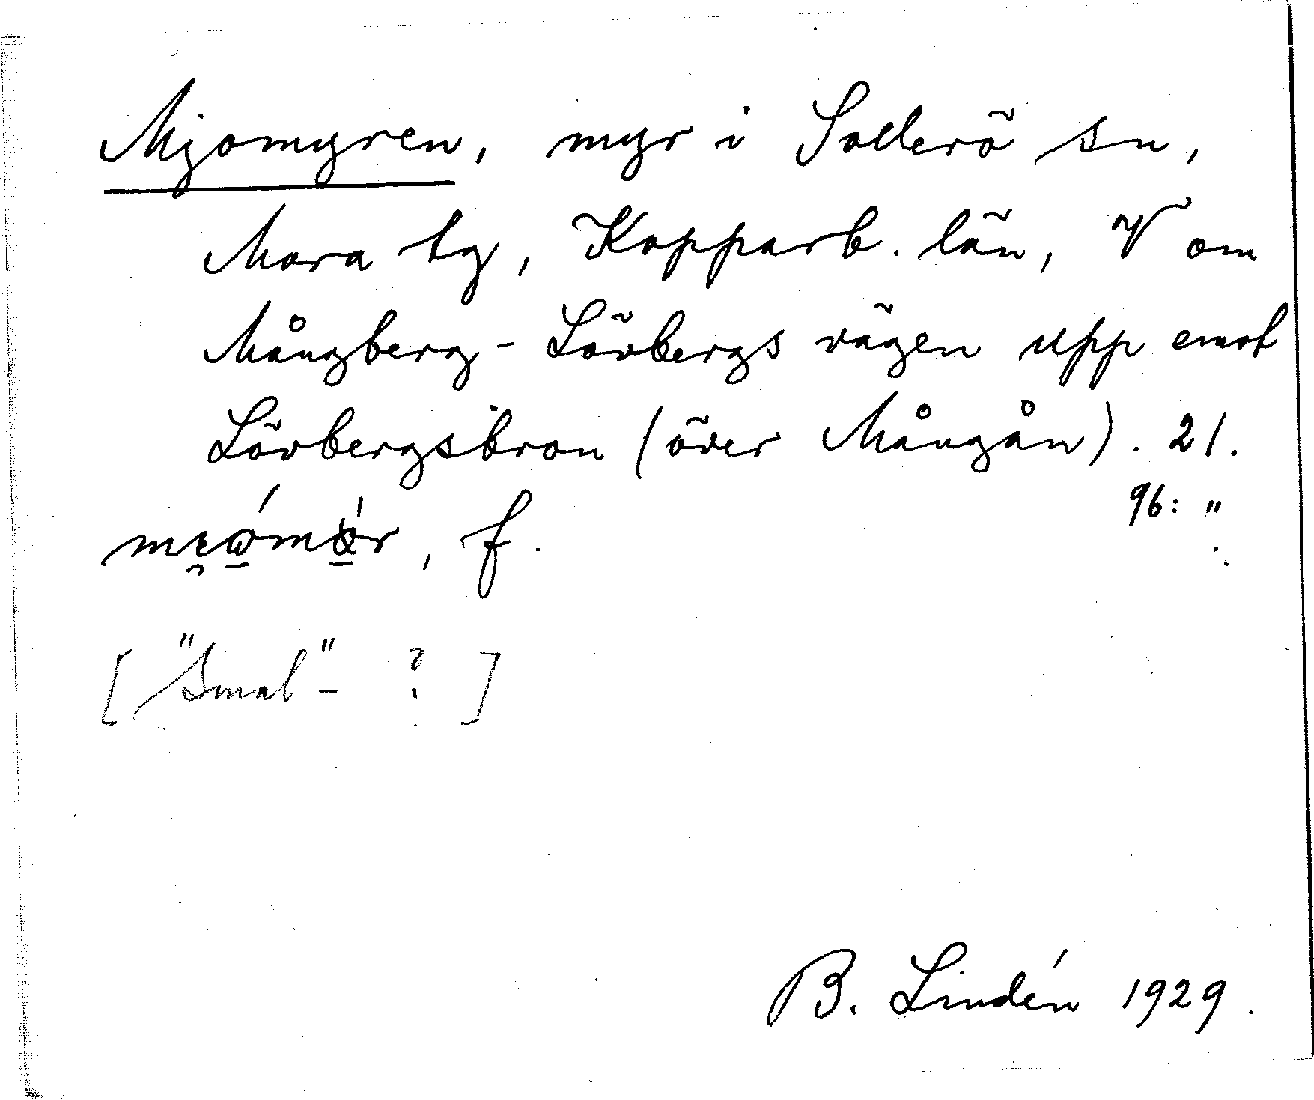 Mjomyren, myr i Sollerö sn,
Mora tg, Kopparb. län, V om
Mångberg - Lövbergs vägen upp emot
Lövbergsbron (över Mångån). 21.
96: "
, f.
["Smal"- ?]
B. Lindén 1929.